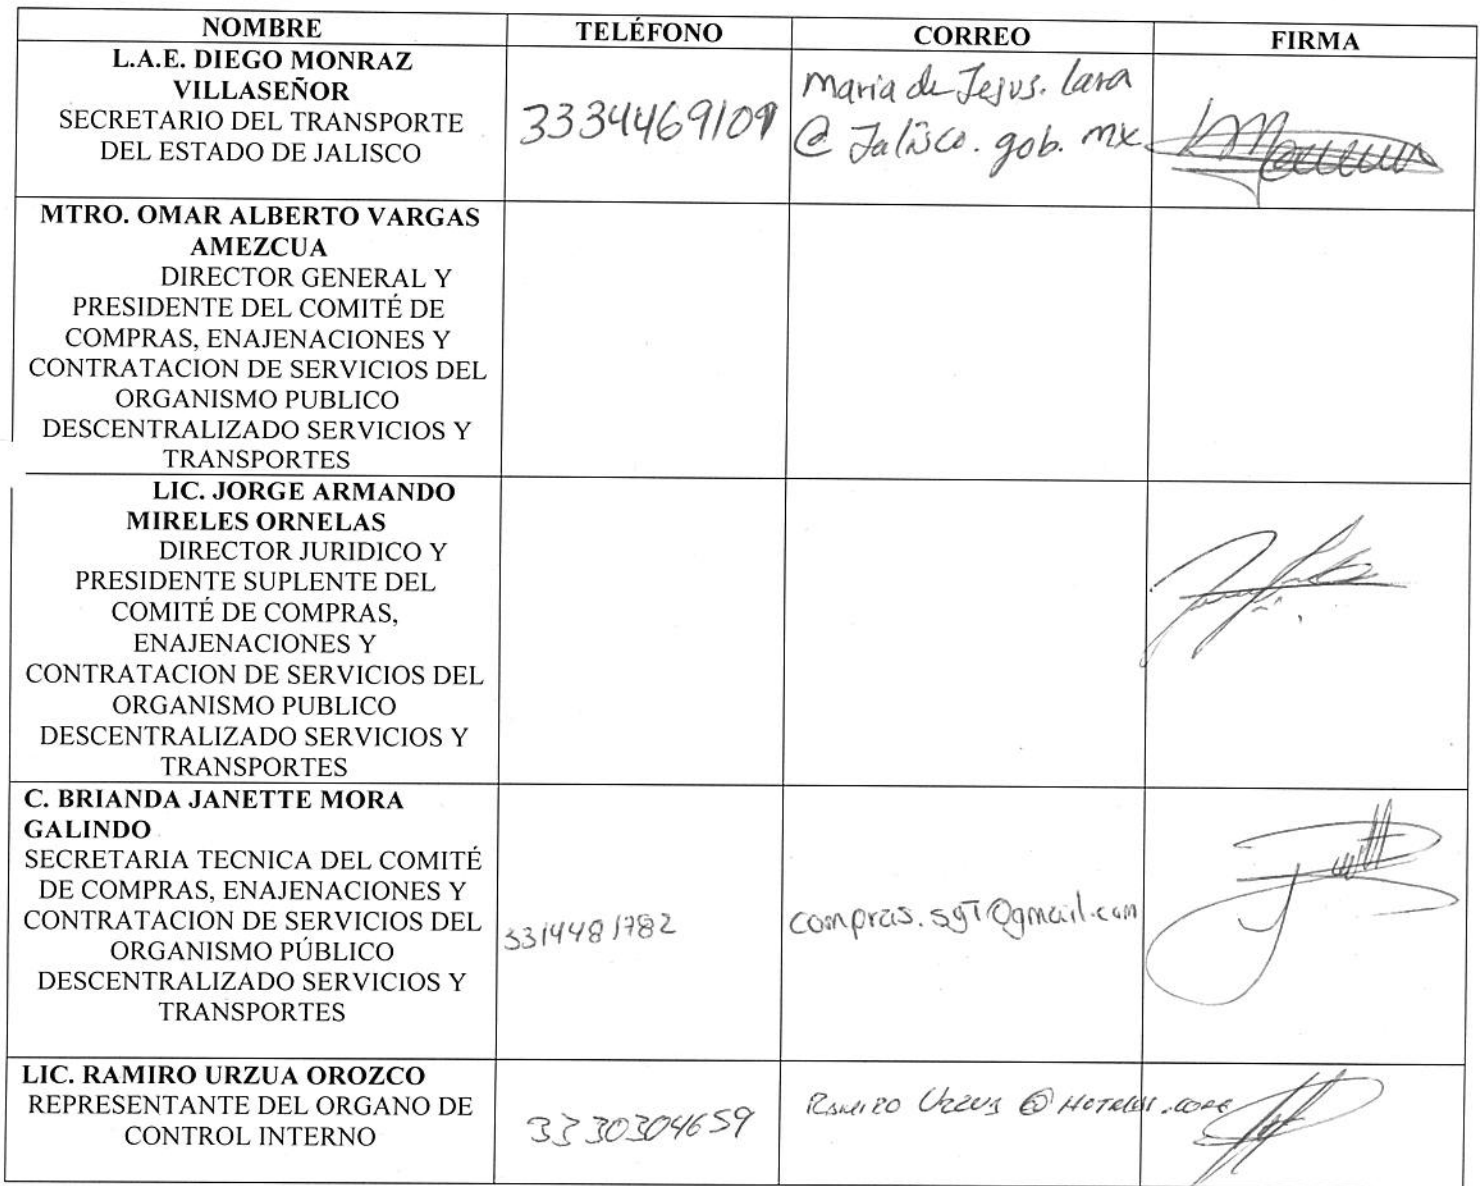 NOMBRE TELÉFONO CORREO FIRMA
L.A.E. DIEGO MONRAZ
VILLASEÑOR
SECRETARIO DEL TRANSPORTE
DEL ESTADO DE JALISCO
3334469109
Maria de Jesus. Lara
@ Jalisco. gob. mx
MTRO. OMAR ALBERTO VARGAS
AMEZCUA
DIRECTOR GENERAL Y
PRESIDENTE DEL COMITÉ DE
COMPRAS, ENAJENACIONES Y
CONTRATACION DE SERVICIOS DEL
ORGANISMO PUBLICO
DESCENTRALIZADO SERVICIOS Y
TRANSPORTES
LIC. JORGE ARMANDO
MIRELES ORNELAS
DIRECTOR JURIDICO Y
PRESIDENTE SUPLENTE DEL
COMITÉ DE COMPRAS,
ENAJENACIONES Y
CONTRATACION DE SERVICIOS DEL
ORGANISMO PUBLICO
DESCENTRALIZADO SERVICIOS Y
TRANSPORTES
C. BRIANDA JANETTE MORA
GALINDO
SECRETARIA TECNICA DEL COMITÉ
DE COMPRAS, ENAJENACIONES Y
CONTRATACION DE SERVICIOS DEL
ORGANISMO PÚBLICO
DESCENTRALIZADO SERVICIOS Y
TRANSPORTES
3314481782
compras.syt@gmail.com
LIC. RAMIRO URZUA OROZCO
REPRESENTANTE DEL ORGANO DE
CONTROL INTERNO
3330304659
Ramiro Urzua @